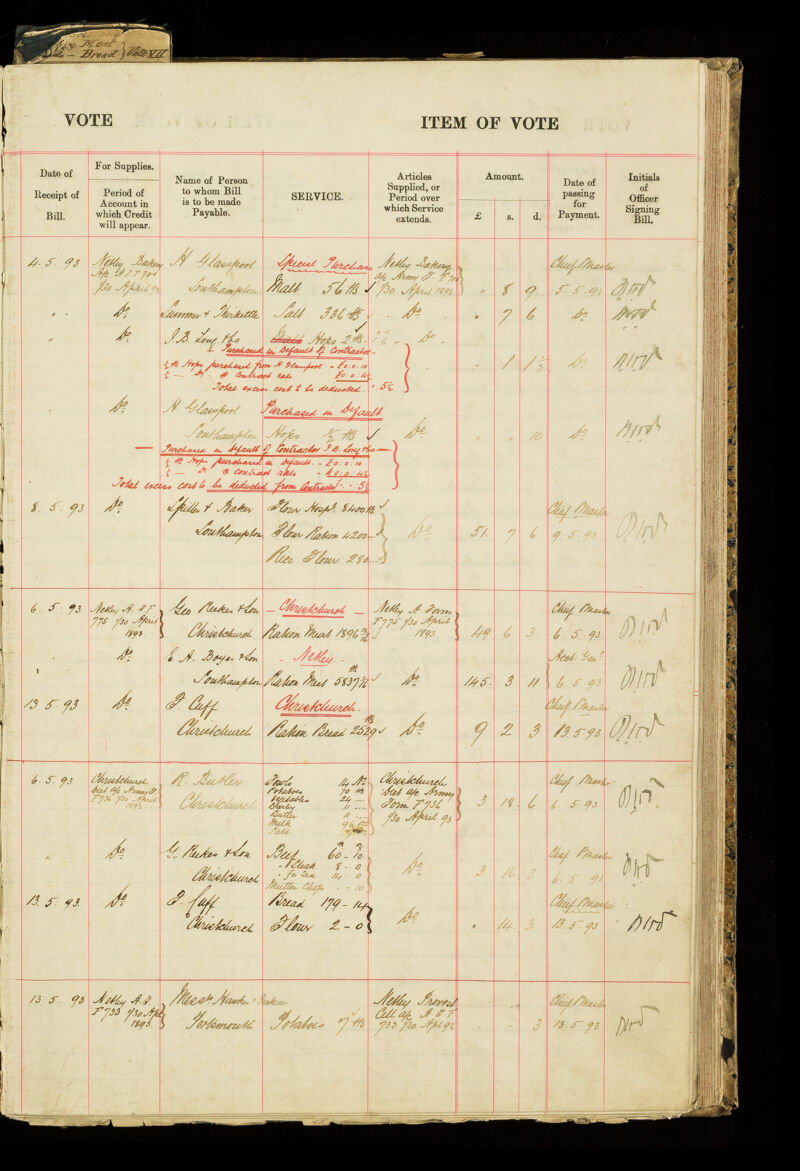 Meat
Bread } Vote VII
VOTE
ITEM OF VOTE
Date of Receipt of Bill.
For Supplies.
Period of Account in which Credit will appear.
Name of Person to whom Bill is to be made Payable.
SERVICE.
Articles Supplied, or Period over which Service extends.
Amount.
£ s. d.
Date of passing for Payment.
Initials of Officer Signing Bill.
4. 5. 93 Netley Bakery H Glaspool Special Purchase Netley Bakery Chief Master
1/30 April 93 Southampton Malt 56 lbs 1/30 April 1893 " 8 9 5. 5. 93
" Do Summer & Thirkettle Salt 336 lbs Do " 7 6 Do
" Do J. B. Long & Co Hops 2 lbs Do 1 1½ Do
Purchased in Default of Contractor
½ lb Hops purchased from H. Glaspool - £0:0:10
½ Do @ Contract rate £0:0:4½
Total excess cost to be deducted 5½
Do H. Glaspool Purchased in Default
Southampton Hops ½ lb Do " " 10 Do
Purchased in Default of Contractor J. B. Long & Co
½ lb Hops purchased in Default - £0:0:10
½ Do @ Contract rate £0:0:4½
Total excess cost to be deducted from Contractor 5½
8. 5. 93 Do Spiller & Baker Flour Hospl. 8400 lb Chief Master
Southampton Flour Ration 4200 Do 51. 7 6 9. 5. 93
Rice Flour 280
6. 5. 93 Netley A. F. Geo Reekes & Son Christchurch Netley A Form Chief Master
775 1/30 April 1893 Christchurch Ration Meat 1896 F775 1/30 April 1893 49 6 3 6. 5. 93
Do E. A. Boyes & Son Netley
Southampton Ration Meat 5837 Do 145. 3 11 6 5 93
13. 5. 93 Do F. Cuff Christchurch. Chief Master
Christchurch Ration Bread 2529 lb Do 9 2 3 13. 5. 93
6. 5. 93 Christchurch R. Butler Fowls 14 No Christchurch Chief Master
Diet a/c Army F. Christchurch Potatoes 70 lb Diet a/c Army
F736 1/30 April 1893 Vegetables 24 Form F736 3. 18. 6 6. 5. 93
11
Butter 11 1/30 April 93
Milk
Salt
" Do G. Reekes & Son Beef 60 - 10 Chief Master
Christchurch Steak 8 - 0 Do 3 16 3 6. 5. 93
for Tea 14 0
Mutton Chops 10
13. 5. 93. Do F. Cuff Bread 179 - 14 Chief Master
Christchurch Flour 2 - 0 Do " 14. 3 13. 5. 93
13 5. 93 Netley A. F. Messrs Hawkes Netley Provost Chief Master
F733 1/30 Apl 1893. Portsmouth Potatoes 7 lb Cell a/c A F 733 1/30 Apl 93 3 13. 5 93